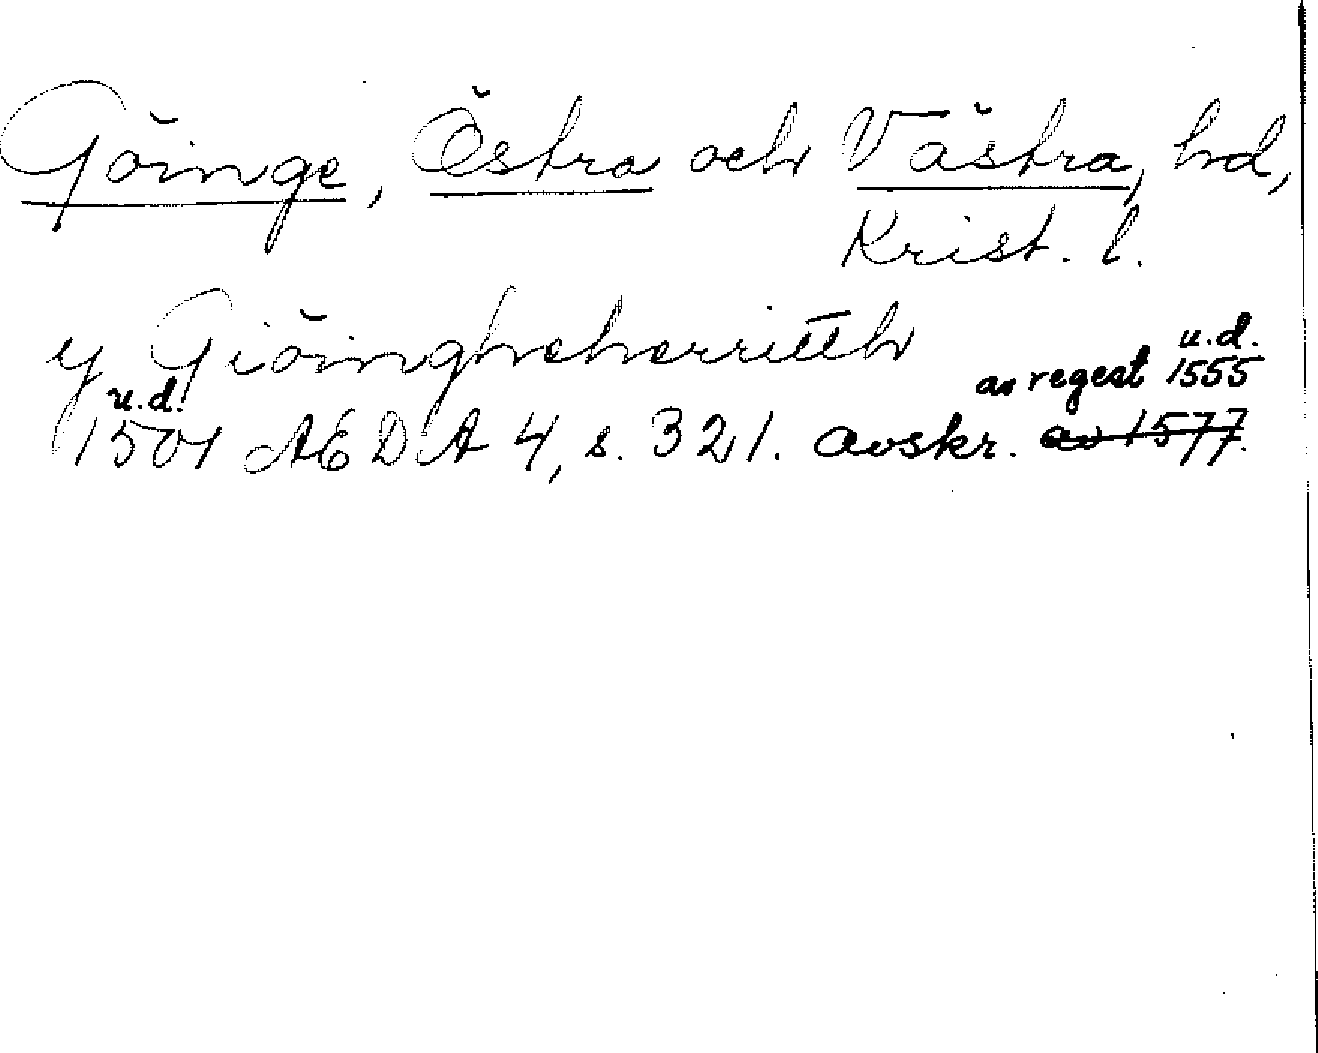 Göinge, Östra och Västra, hd,
Krist. l.
y Giöingheherritth
u.d.
av regest 1555
u.d.
1501 AEDA 4, s. 321. avskr. av 1577.